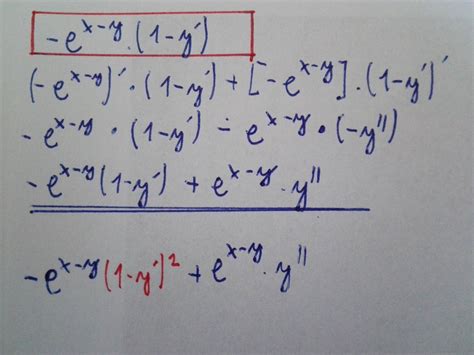 -e^{x-y}·(1-y')
(-e^{x-y})'·(1-y') + [-e^{x-y}]·(1-y')'
-e^{x-y}·(1-y') - e^{x-y}·(-y'')
-e^{x-y}(1-y') + e^{x-y}·y''
-e^{x-y}(1-y')² + e^{x-y}·y''